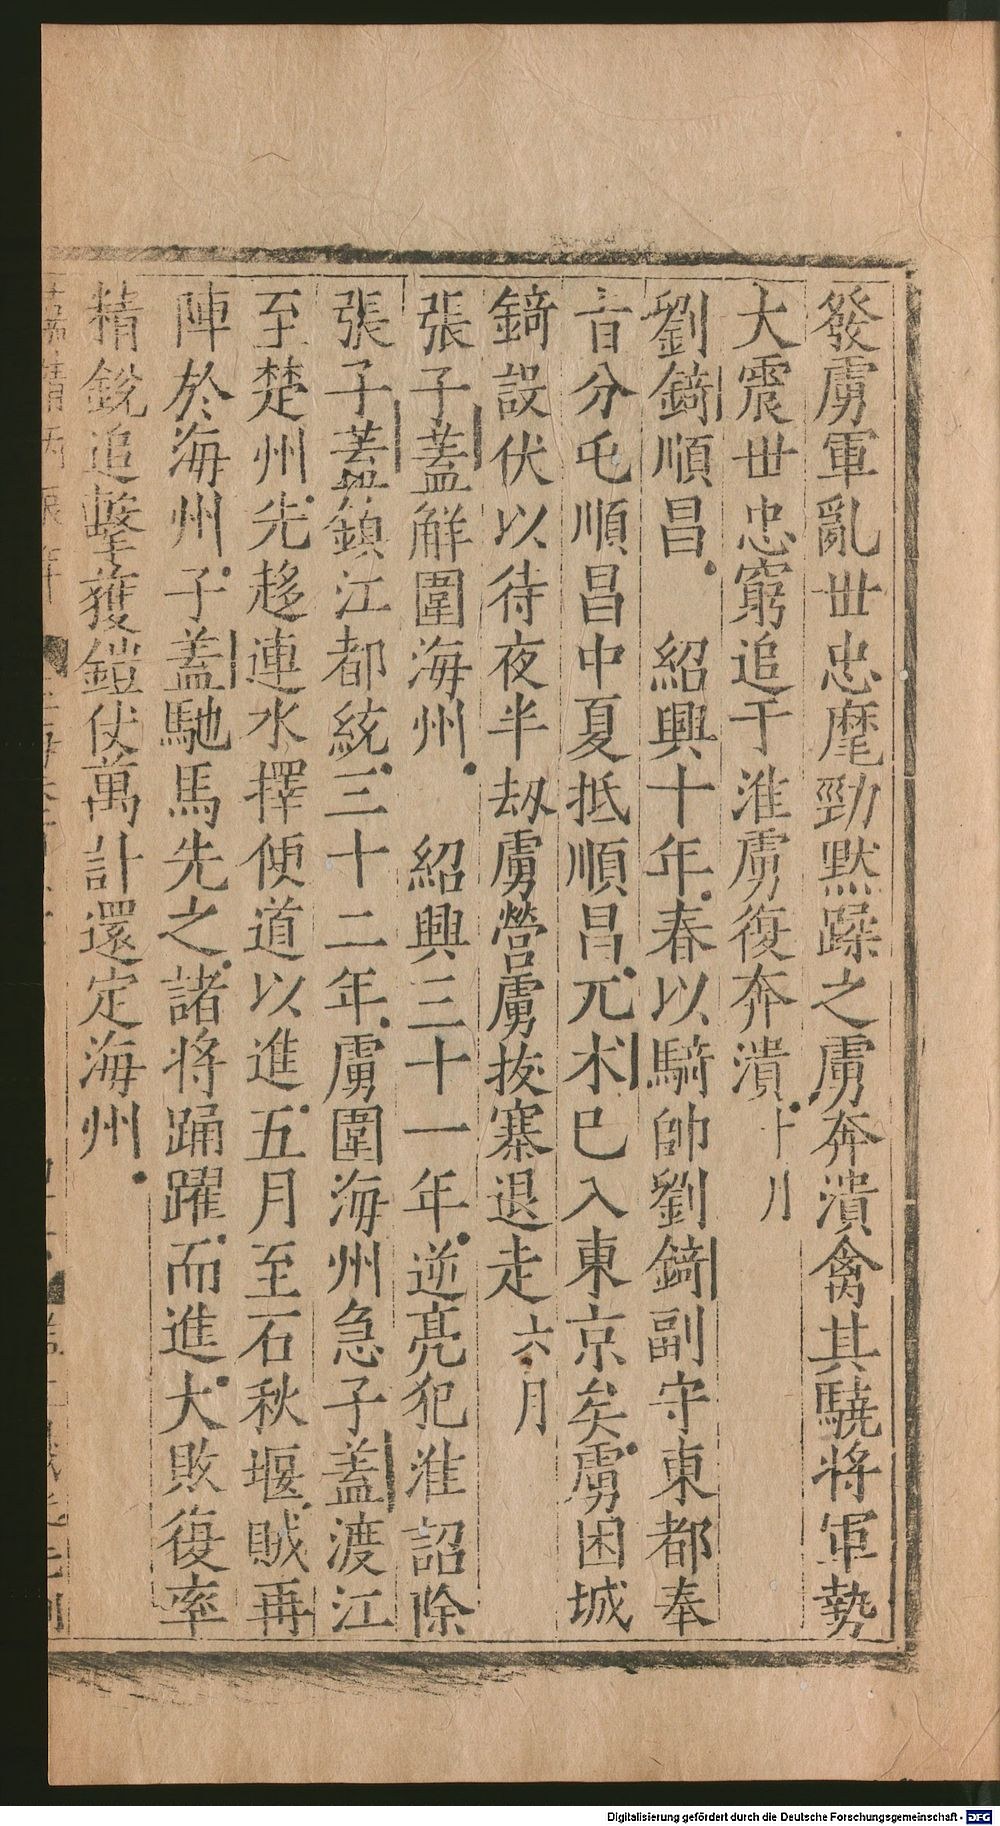 發虜軍亂世忠麾勁默蹂之虜奔潰禽其驍將軍勢
大震世忠窮追于淮虜復奔潰十月
劉錡順昌 紹興十年春以騎帥劉錡副守東都奉
旨分屯順昌中夏抵順昌兀朮已入東京矣虜困城
錡設伏以待夜半劫虜營虜拔寨退走六月
張子蓋解圍海州 紹興三十一年逆亮犯淮詔除
張子蓋鎮江都統三十二年虜圍海州急子蓋渡江
至楚州先趍連水擇便道以進五月至石秋堰賊再
陣於海州子蓋馳馬先之諸將踊躍而進大敗復率
精銳追擊獲鎧仗萬計還定海州
Digitalisierung gefördert durch die Deutsche Forschungsgemeinschaft - DFG